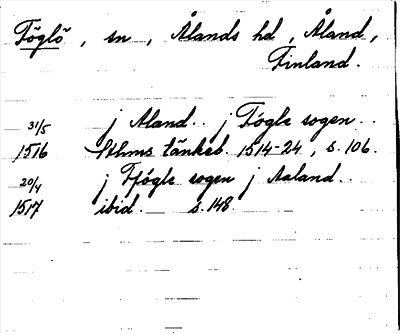 Föglö, sn, Ålands hd, Åland,
Finland.
31/5 j Aland.. j Föglc sogen..
1516 Sthms tänkeb. 1514-24, s. 106.
20/4 j Ffögle sogen j Aaland..
1517 ibid. s. 148.